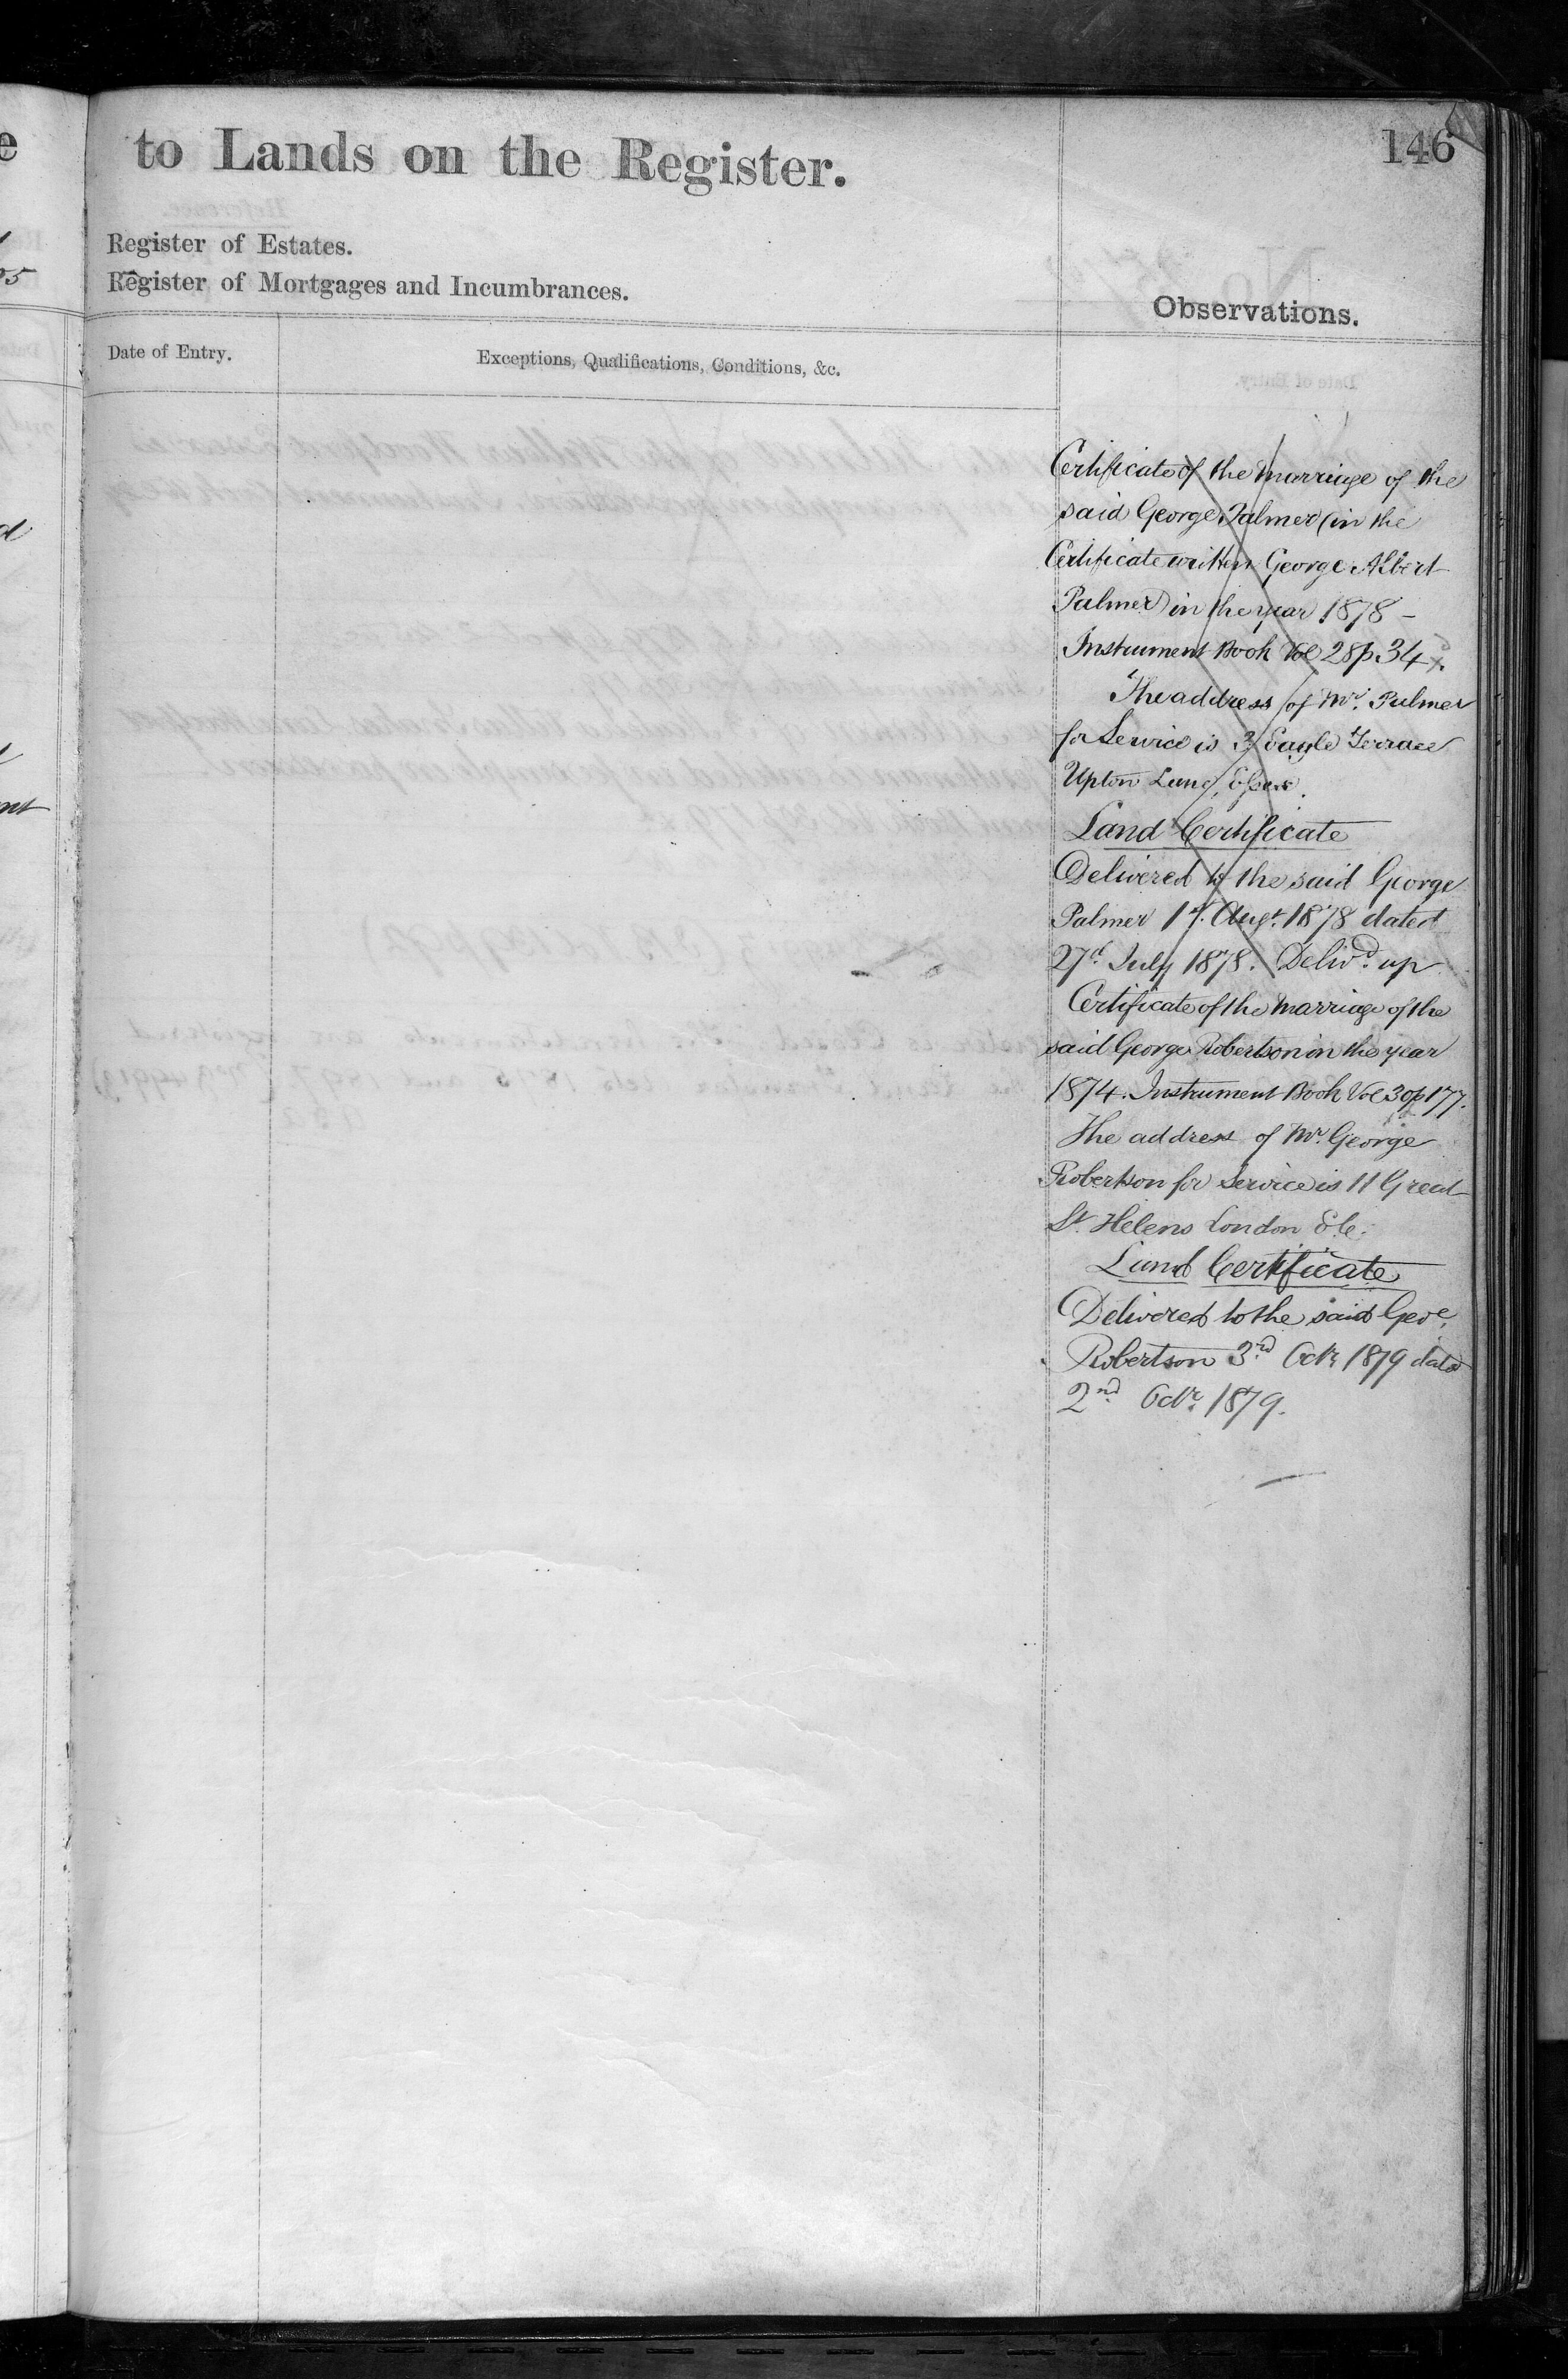 to Lands on the Register.
146
Register of Estates.
Register of Mortgages and Incumbrances.
Observations.
Date of Entry.
Exceptions, Qualifications, Conditions, &c.
Certificate of the marriage of the
said George Palmer (in the
Certificate written George Albert
Palmer) in the year 1878 -
Instrument Book Vol 28 p 34
The address of Mr. Palmer
for Service is 3 Eagle Terrace
Upton Lane, Essex.
Land Certificate
Delivered to the said George
Palmer 1st. Augt. 1878 dated
27d July 1878. Delivd. up
Certificate of the marriage of the
said George Robertson in the year
1874. Instrument Book Vol 30 p 177.
The address of Mr. George
Robertson for Service is 11 Great
St. Helens London E.C.
Land Certificate
Delivered to the said Geoe.
Robertson 3rd Octr. 1879 dated
2nd Octr. 1879.